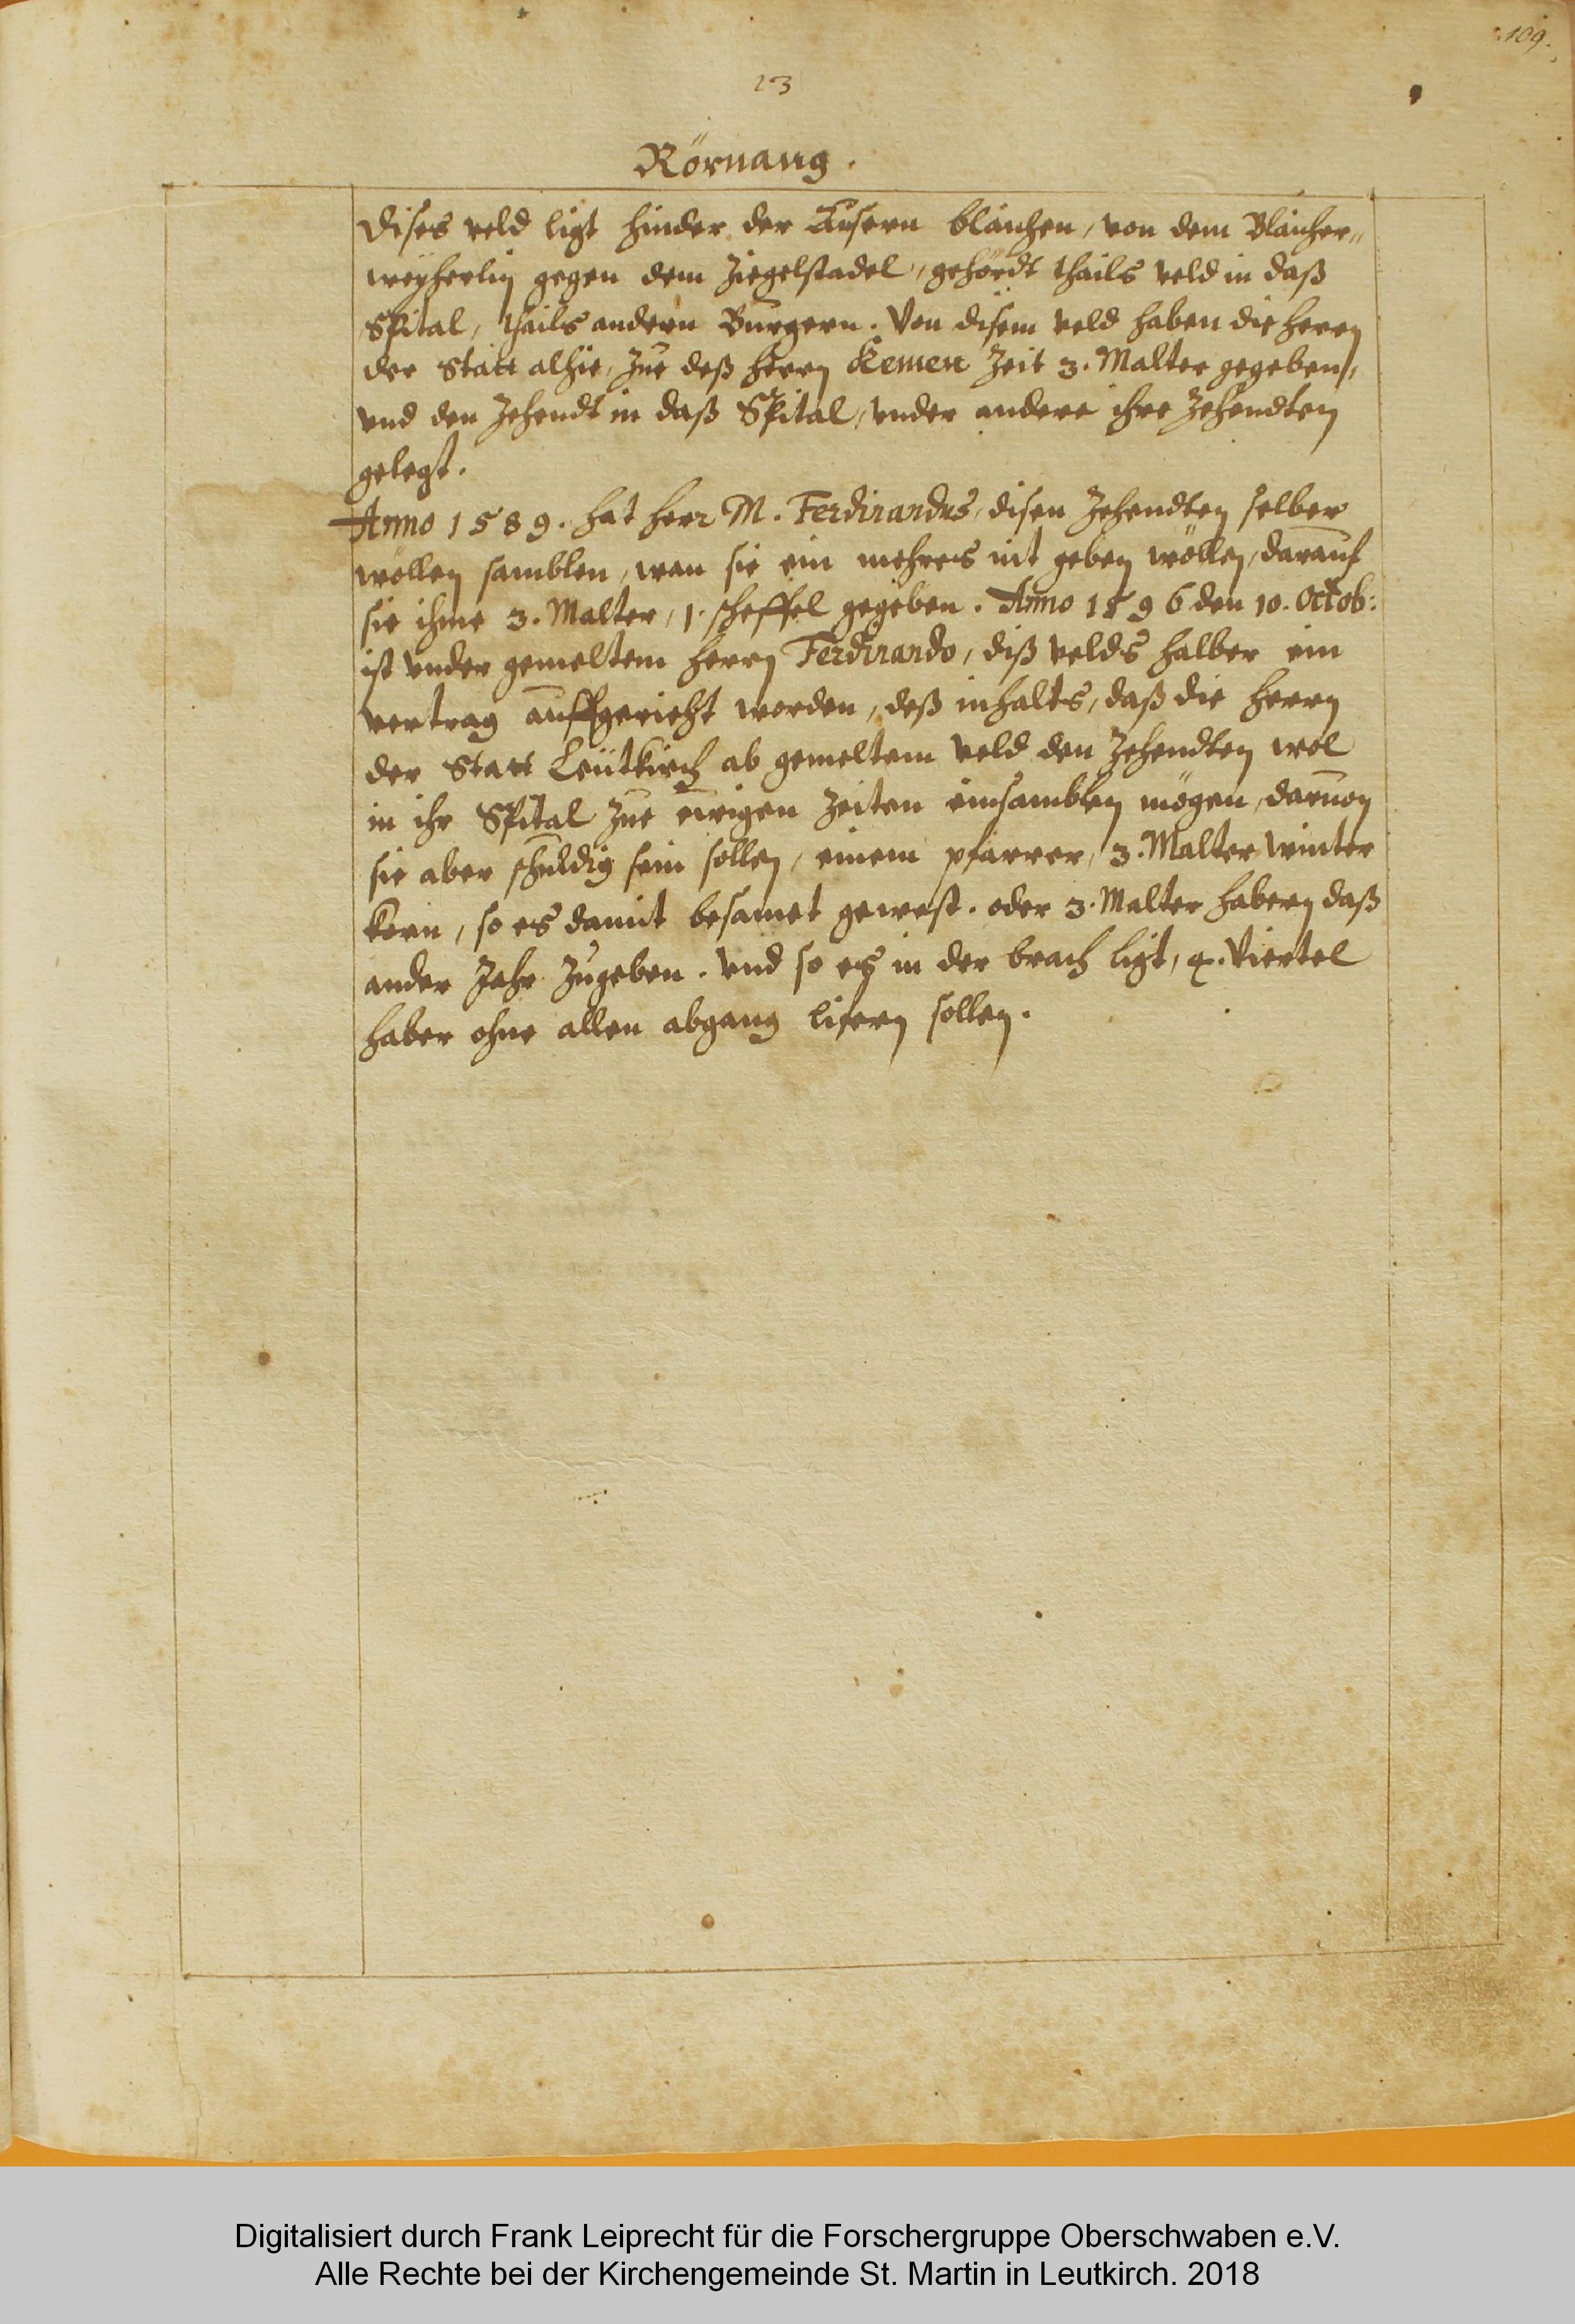 109.
23
Rörnang.
Dises veld ligt hinder der Äusern blaichen, von dem Blaicher„
weyherlin gegen dem Ziegelstadel, gehördt thails veld in daß
Spital, thails andern Burgern. Von disem veld haben die herrn
der Statt alhie, Zue deß herrn Zeit 3. Malter gegeben,
vnd den Zehendt in daß Spital, vnder andere ihre Zehendten
gelegt.
Anno 1589. hat herr M. Ferdinandus, disen Zehendten selber
wöllen samblen, wan sie ein mehrers nit geben wöllen, darauf
sie ihme 3. Malter, 1. scheffel gegeben. Anno 1596 den 10. Octob:
ist vnder gemeltem herrn Ferdinando, diß velds halber ein
vertrag auffgericht worden, deß inhalts, daß die herrn
der Statt Leütkirch ab gemeltem veld den Zehendten wol
in ihr Spital Zue ewigen Zeiten einsamblen mögen, daruon
sie aber schuldig sein sollen, einem pfarrer, 3. Malter winter
kern, so es damit besamet gewest. oder 3. Malter habern daß
ander Jahr Zugeben. Vnd so es in der brach ligt, 4. Viertel
haber ohne allen abgang lifern sollen.
Digitalisiert durch Frank Leiprecht für die Forschergruppe Oberschwaben e.V.
Alle Rechte bei der Kirchengemeinde St. Martin in Leutkirch. 2018